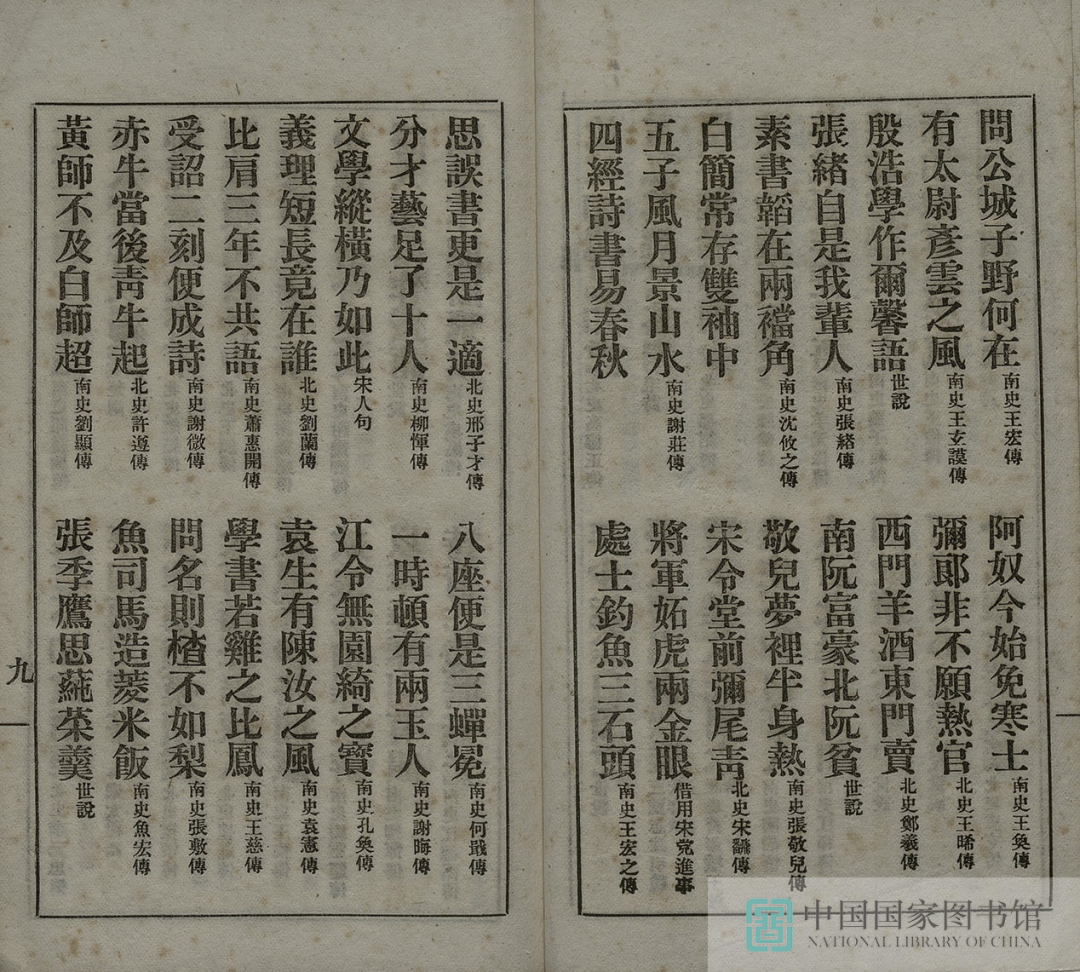 問公城子野何在 南史王宏傳 阿奴今始免寒士 南史王奐傳
有太尉彥雲之風 南史王玄謨傳 彌郎非不願熱官 北史王晞傳
殷浩學作爾馨語 世說 西門羊酒東門賣 北史鄭羲傳
張緒自是我輩人 南史張緒傳 南阮富豪北阮貧 世說
素書韜在兩襠角 南史沈攸之傳 敬兒夢裡半身熱 南史張敬兒傳
白簡常存雙袖中 宋令堂前彌尾靑 北史宋繇傳
五子風月景山水 南史謝莊傳 將軍妬虎兩金眼 借用宋党進事
四經詩書易春秋 處士釣魚三石頭 南史王宏之傳
思誤書更是一適 北史邢子才傳 八座便是三蟬冕 南史何戢傳
分才藝足了十人 南史柳惲傳 一時頓有兩玉人 南史謝晦傳
文學縱橫乃如此 宋人句 江令無園綺之實 南史孔奐傳
義理短長竟在誰 北史劉蘭傳 袁生有陳汝之風 南史袁憲傳
比肩三年不共語 南史蕭惠開傳 學書若雞之比鳳 南史王慈傳
受詔二刻便成詩 南史謝微傳 問名則樝不如梨 南史張敷傳
赤牛當後靑牛起 北史許遵傳 魚司馬造菱米飯 南史魚宏傳
黃師不及白師超 南史劉顯傳 張季鷹思蒓菜羹 世說
九
中国国家图书馆
NATIONAL LIBRARY OF CHINA